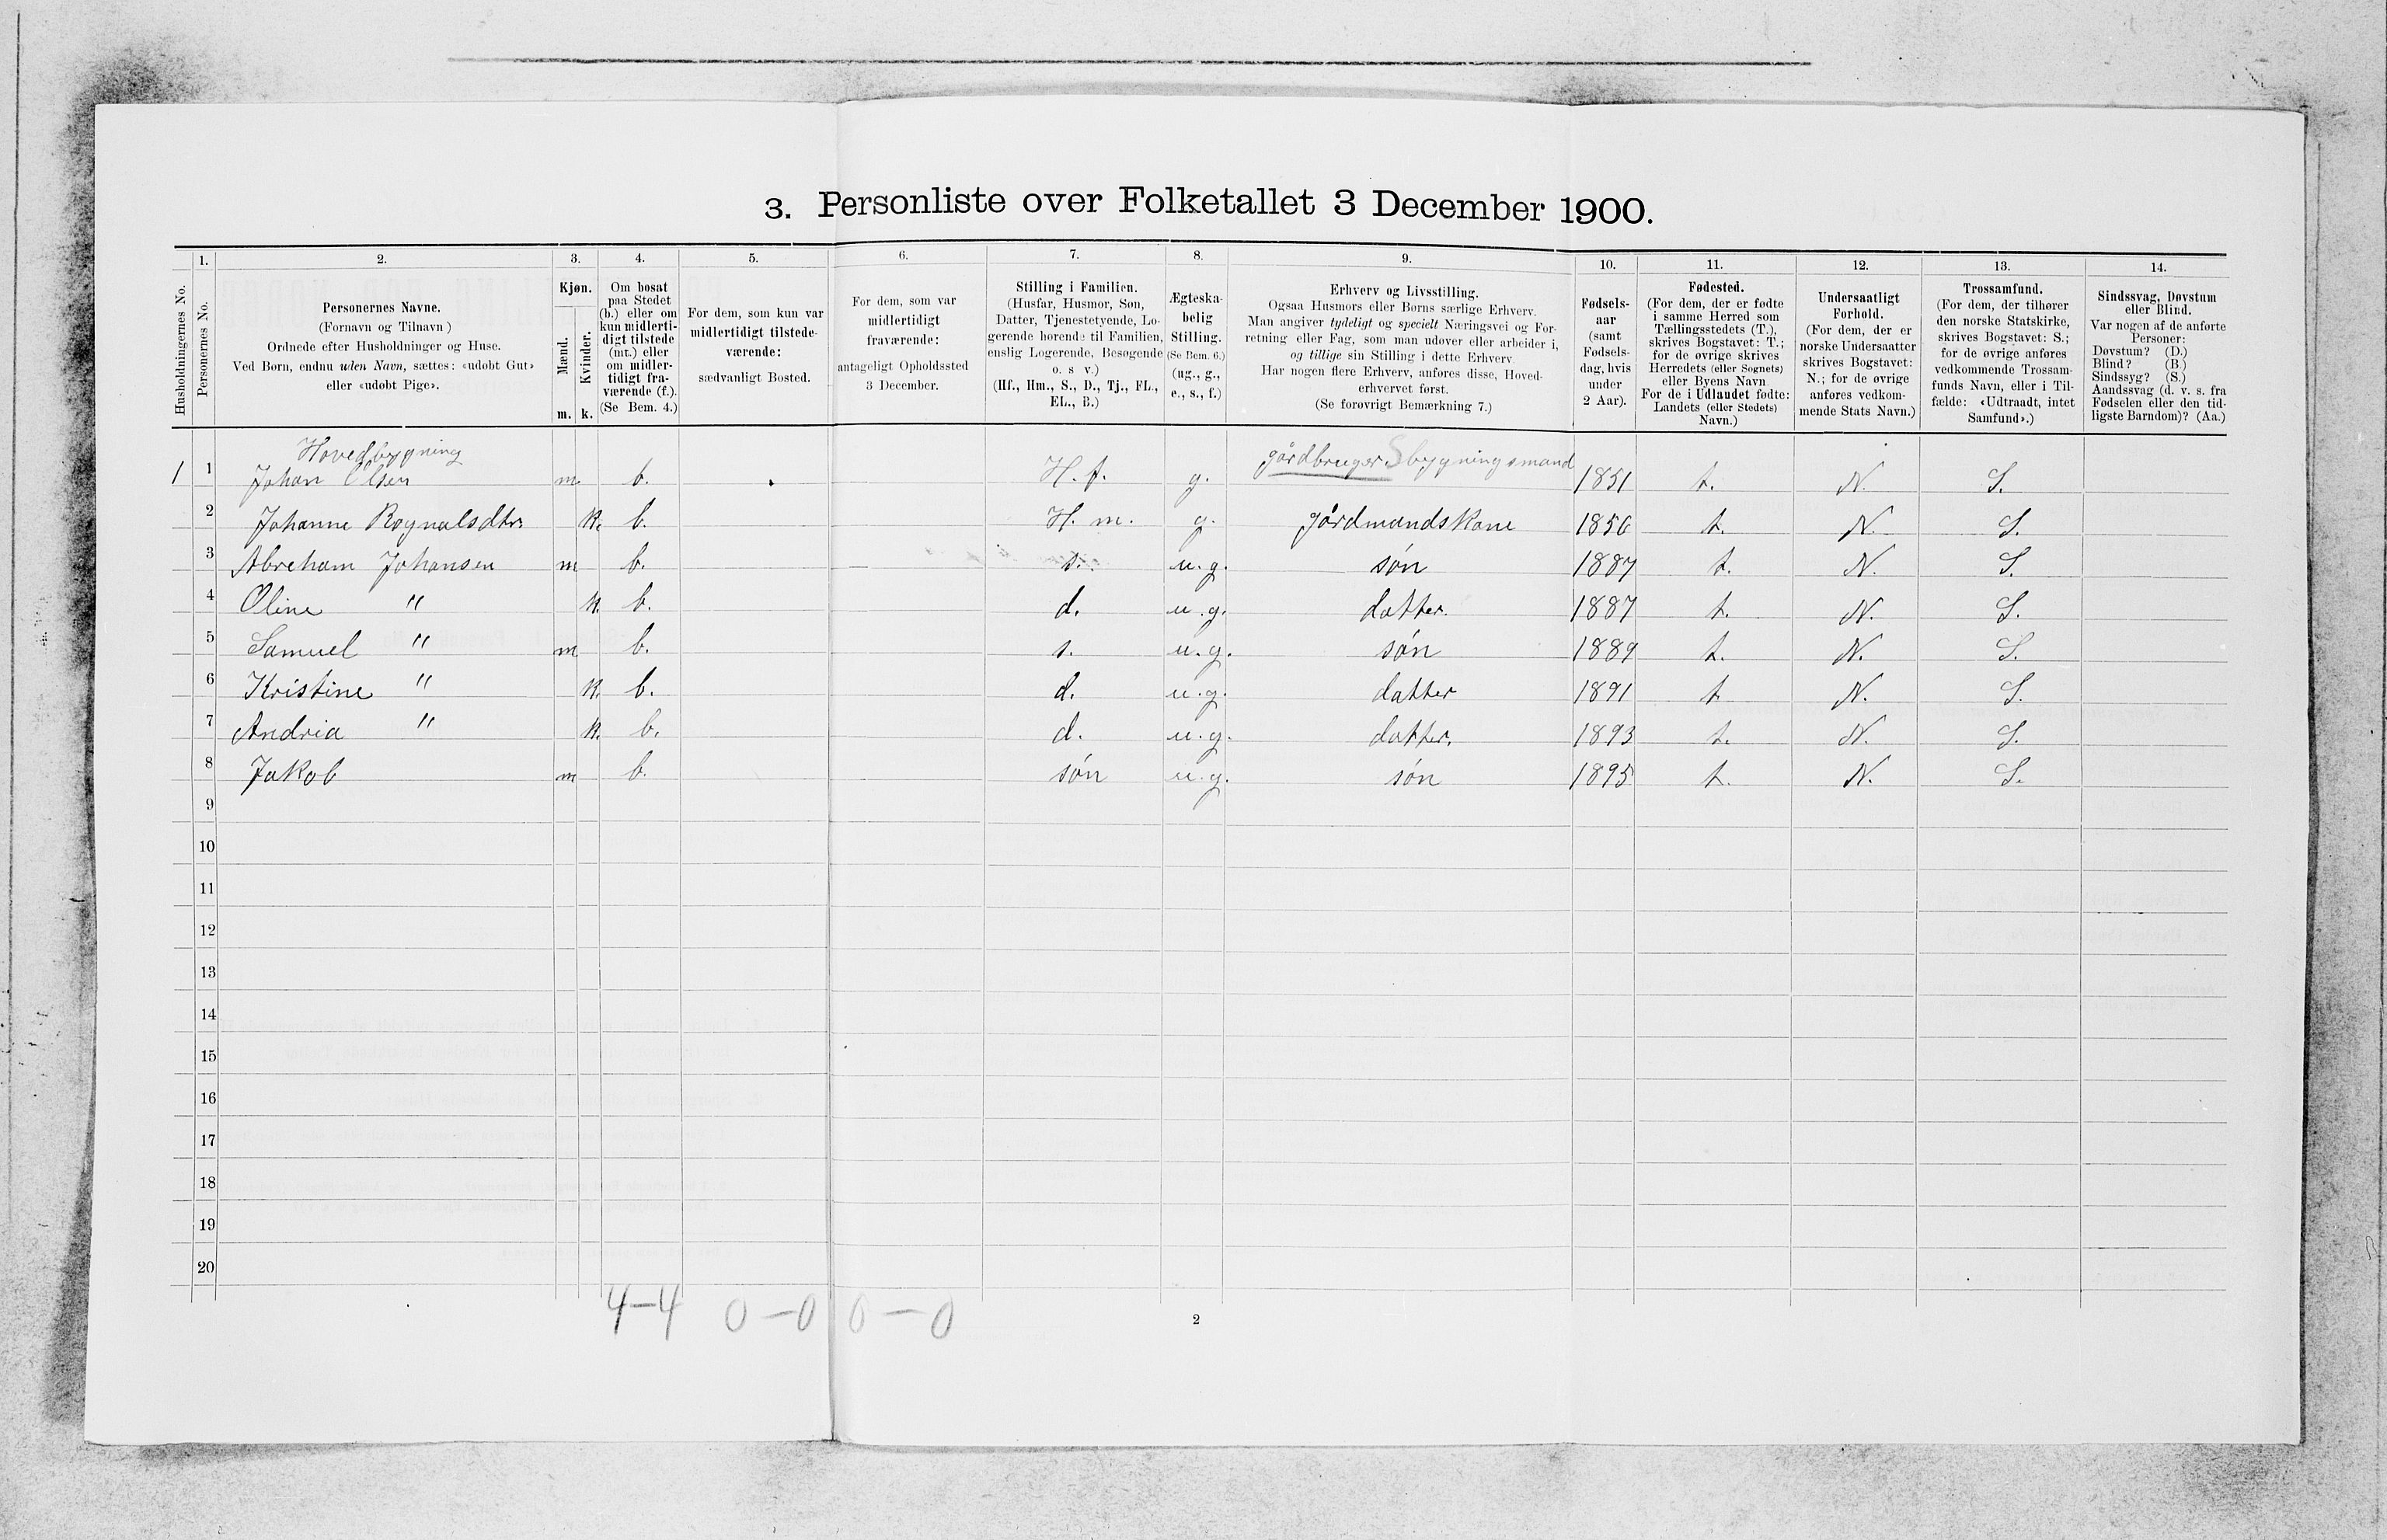 3. Personliste over Folketallet 3 December 1900.
1. 2. 3. 4. 5. 6. 7. 8. 9. 10. 11. 12. 13. 14.
Husholdningernes No.
Personernes No.
Personernes Navne.
(Fornavn og Tilnavn)
Ordnede efter Husholdninger og Huse.
Ved Børn, endnu uden Navn, sættes: «udøbt Gut»
eller «udøbt Pige».
Kjøn.
Mænd.
Kvinder.
m. k.
Om bosat
paa Stedet
(b.) eller om
kun midlerti-
digt tilstede
(mt.) eller
om midler-
tidigt fra-
værende (f.).
(Se Bem. 4.)
For dem, som kun var
midlertidigt tilstede-
værende:
sædvanligt Bosted.
For dem, som var
midlertidigt
fraværende:
antageligt Opholdssted
3 December.
Stilling i Familien.
(Husfar, Husmor, Søn,
Datter, Tjenestetyende, Lo-
gerende hørende til Familien,
enslig Logerende, Besøgende
o. s v.)
(Hf., Hm., S., D., Tj., FL.,
EL., B.)
Ægteska-
belig
Stilling.
(Se Bem. 6.)
(ug., g.,
e., s., f.)
Erhverv og Livsstilling.
Ogsaa Husmors eller Børns særlige Erhverv.
Man angiver tydeligt og specielt Næringsvei og For-
retning eller Fag, som man udøver eller arbeider i,
og tillige sin Stilling i dette Erhverv.
Har nogen flere Erhverv, anføres disse, Hoved-
erhvervet først.
(Se forøvrigt Bemærkning 7.)
Fødsels-
aar
(samt
Fødsels-
dag, hvis
under
2 Aar).
Fødested.
(For dem, der er fødte
i samme Herred som
Tællingsstedets (T.),
skrives Bogstavet: T.;
for de øvrige skrives
Herredets (eller Sognets)
eller Byens Navn.
For de i Udlandet fødte:
Landets (eller Stedets)
Navn.)
Undersaatligt
Forhold.
(For dem, der er
norske Undersaatter
skrives Bogstavet:
N.; for de øvrige
anføres vedkom-
mende Stats Navn.)
Trossamfund.
(For dem, der tilhører
den norske Statskirke,
skrives Bogstavet: S.;
for de øvrige anføres
vedkommende Trossam-
funds Navn, eller i Til-
fælde: «Udtraadt, intet
Samfund».)
Sindssvag, Døvstum
eller Blind.
Var nogen af de anførte
Personer:
Døvstum? (D.)
Blind? (B.)
Sindssyg? (S.)
Aandssvag (d. v. s. fra
Fødselen eller den tid-
ligste Barndom)? (Aa.)
Hovedbygning
1 1 Johan Olsen m b. H. f. g. gårdbruger S bygningsmand 1851 t. N. S.
2 Johanne Rognalsdtr. k. b. H. m. g. gårdmandskone 1856 t. N. S.
3 Abreham Johansen m b. s. u. g. søn 1887 t. N. S.
4 Oline " k. b. d. u. g. datter. 1887 t. N. S.
5 Samuel " m b. s. u. g. søn 1889 t. N. S.
6 Kristine " k. b. d. u. g. datter 1891 t N. S.
7 Andria " k. b. d. u. g. datter. 1893 t. N. S.
8 Jakob m b. søn u. g. søn 1895 t. N. S.
9
10
11
12
13
14
15
16
17
18
19
20
4-4 0-0 0-0
2